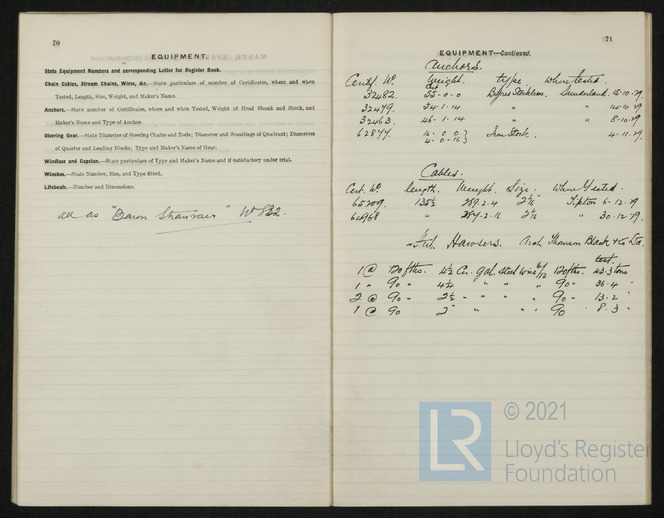 70
EQUIPMENT.
State Equipment Numbers and corresponding Letter for Register Book.
Chain Cables, Stream Chains, Wires, &c.—State particulars of number of Certificates, where and when
Tested, Length, Size, Weight, and Maker's Name.
Anchors.—State number of Certificates, where and when Tested, Weight of Head Shank and Stock, and
Maker's Name and Type of Anchor.
Steering Gear.—State Diameter of Steering Chains and Rods; Diameter and Scantlings of Quadrant; Diameters
of Quarter and Leading Blocks; Type and Maker's Name of Gear.
Windlass and Capstan.—State particulars of Type and Maker's Name and if satisfactory under trial.
Winches.—State Number, Size, and Type fitted.
Lifeboats.—Number and Dimensions.
all as "Baron" No 832.
71
EQUIPMENT—Continued.
Anchors.
Certf. No. Weight. type. When tested.
32482. 55-0-0 Byers Stockless. Sunderland. 15-10-29.
32479. 54-1-14 " " 14-10-29
32463. 46-1-14 " " 8-10-29
62877. 16-0-0 } Iron Stock. 4-11-29.
4-0-16 }
Cables.
Cert. No. length. Weight. Size. Where tested.
65209. 135½ 289.2.4 2 Tipton 6-12-29.
" " 30-12-29.
Hawsers. Thomson Black & Co Ltd.
test.
1 @ 120 fths. 4½ Cir. gal. steel wire 6/12 120 fths. 43.3 tons
1 " 90 " " " " 90 " 36.4 "
2 @ 90 " " " " " 90 " 13.2 "
1 @ 90 2" " " 90 8.3 "
© 2021
LR
Lloyd's Register
Foundation